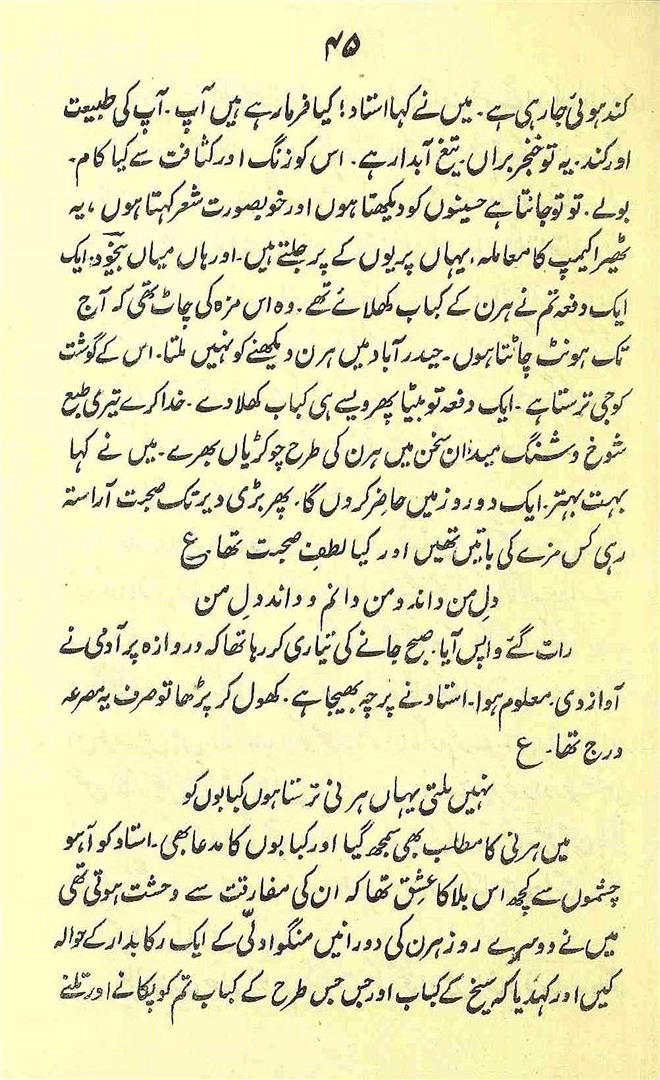 ۴۵
کند ہوئی جا رہی ہے۔ میں نے کہا استاد! کیا فرما رہے ہیں آپ۔ آپ کی طبیعت
اور کند۔ یہ تو خنجر براں، تیغ آبدار ہے۔ اس کو زنگ اور کثافت سے کیا کام۔
بولے۔ تو تو جانتا ہے حسینوں کو دیکھتا ہوں اور خوبصورت شعر کہتا ہوں، یہ
ٹھیرا کیمپ کا معاملہ، یہاں پریوں کے پر جلتے ہیں۔ اور ہاں میاں بیخود، ایک
ایک دفعہ تم نے ہرن کے کباب کھلائے تھے۔ وہ اس مزہ کی چاٹ تھی کہ آج
تک ہونٹ چاٹتا ہوں۔ حیدر آباد میں ہرن دیکھنے کو نہیں ملتا۔ اس کے گوشت
کو جی ترستا ہے۔ ایک دفعہ تو بیٹا پھر ویسے ہی کباب کھلا دے۔ خدا کرے تیری طبع
شوخ و شنگ میدان سخن میں ہرن کی طرح چوکڑیاں بھرے۔ میں نے کہا
بہت بہتر۔ ایک دو روز میں حاضر کروں گا۔ پھر بڑی دیر تک صحبت آراستہ
رہی کس مزے کی باتیں تھیں اور کیا لطفِ صحبت تھا۔ ع
دلِ من داند و من دانم و داند دلِ من
رات گئے واپس آیا۔ صبح جانے کی تیاری کر رہا تھا کہ دروازہ پر آدمی نے
آواز دی۔ معلوم ہوا۔ استاد نے پرچہ بھیجا ہے۔ کھول کر پڑھا تو صرف یہ مصرعہ
درج تھا۔ ع
نہیں ملتی یہاں ہرنی ترستا ہوں کبابوں کو
میں ہرنی کا مطلب بھی سمجھ گیا اور کبابوں کا مدعا بھی۔ استاد کو آہو
چشموں سے کچھ اس بلا کا عشق تھا کہ ان کی مفارقت سے وحشت ہوتی تھی
میں نے دوسرے روز ہرن کی دو رانیں منگوا دلّی کے ایک رکابدار کے حوالہ
کیں اور کہدیا کہ سیخ کے کباب اور جس جس طرح کے کباب تم کو پکانے اور تلنے